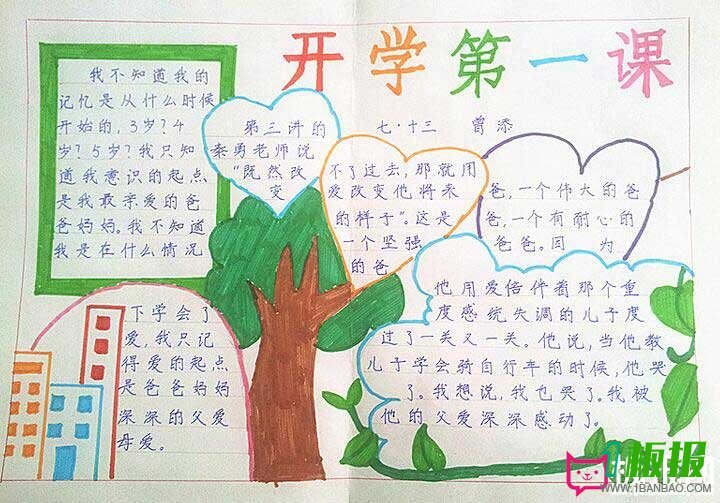 开学第一课
七·十三 曾添
我不知道我的
记忆是从什么时候
开始的，3岁？4
岁？5岁？我只知
道我意识的起点
是我最亲爱的爸
爸妈妈。我不知道
我是在什么情况
下学会了
爱，我只记
得爱的起点
是爸爸妈妈
深深的父爱
母爱。
第三讲的
秦勇老师说
“既然改
变
不了过去，那就用
爱改变他将来
的样子”。这是
一个坚强
的爸
爸，一个伟大的爸
爸，一个有耐心的
爸爸。因 为
他用爱陪伴着那个重
度感统失调的儿子度
过了一关又一关。他说，当他教
儿子学会骑自行车的时候，他哭
了。我想说，我也哭了。我被
他的父爱深深感动了。
板报
WWW.1BANBAO.COM